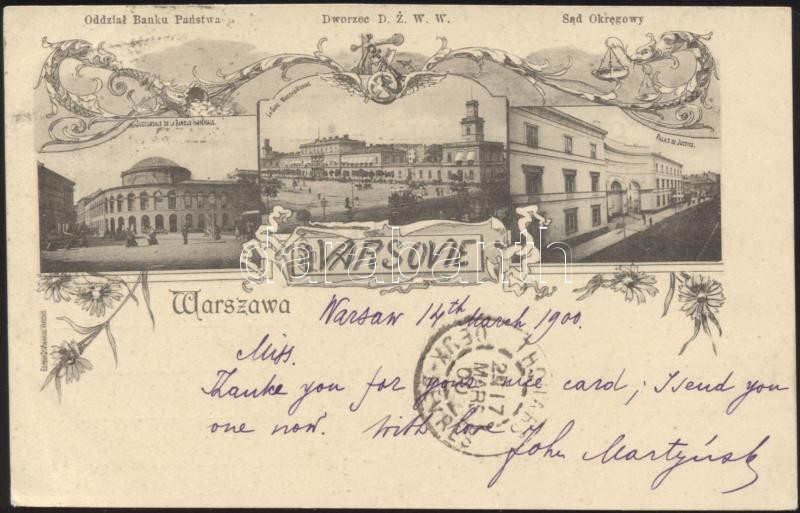 Oddział Banku Państwa
Dworzec D. Ż. W. W.
Sąd Okręgowy
Succursale de la Banque Impériale.
La Gare
Palais de Justice.
VARSOVIE
darabanth
Warszawa
Warsaw 14th March 1900.
Miss.
Thanke you for your nice card, I send you
one now. With love
John Martyński
17
MARS